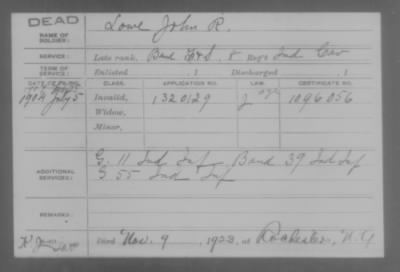 DEAD
NAME OF SOLDIER: Lowe John R.
SERVICE: Late rank, Band F&S, 8 Reg't Ind Cav
TERM OF SERVICE: Enlisted , 1 Discharged , 1
DATE OF FILING. CLASS. APPLICATION NO. LAW. CERTIFICATE NO.
1904 July 5 Invalid, 1320129 J 1096056
Widow,
Minor,
ADDITIONAL SERVICES: G. 11 Ind Inf Band 39 Ind Inf
G 55 Ind Inf
REMARKS:
Died Nov. 9, 1923, at Rochester, N.Y.